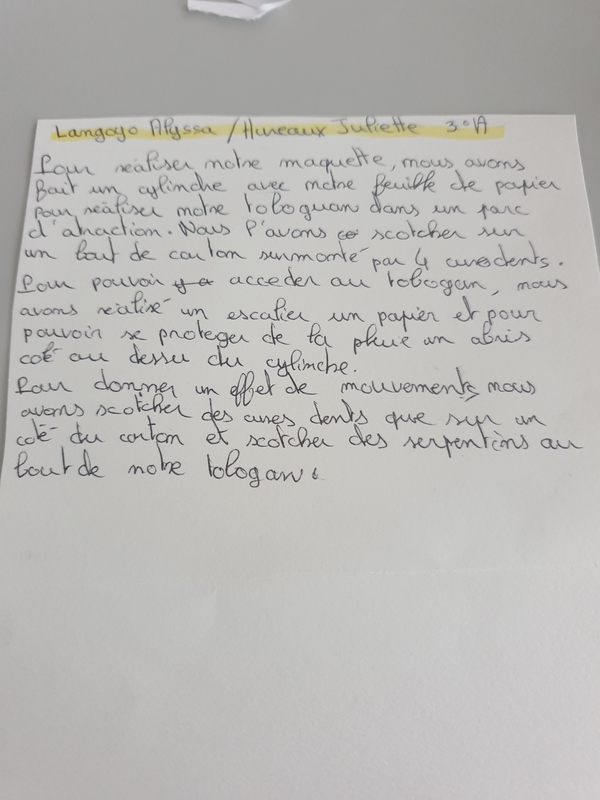 Langoyo Alyssa / Hureaux Juliette 3°A
Pour réaliser notre maquette, nous avons
fait un cylindre avec notre feuille de papier
pour réaliser notre tologuan dans un parc
d'atraction. Nous l'avons scotcher sur
un bout de carton surmonté par 4 curedents.
Pour pouvoir acceder au tobogan, nous
avons réalisé un escalier un papier et pour
pouvoir se proteger de la pluie un abris
colé au dessu du cylindre.
Pour donner un effet de mouvements, nous
avons scotcher des cures dents que sur un
coté du carton et scotcher des serpentins au
bout de notre tologan.